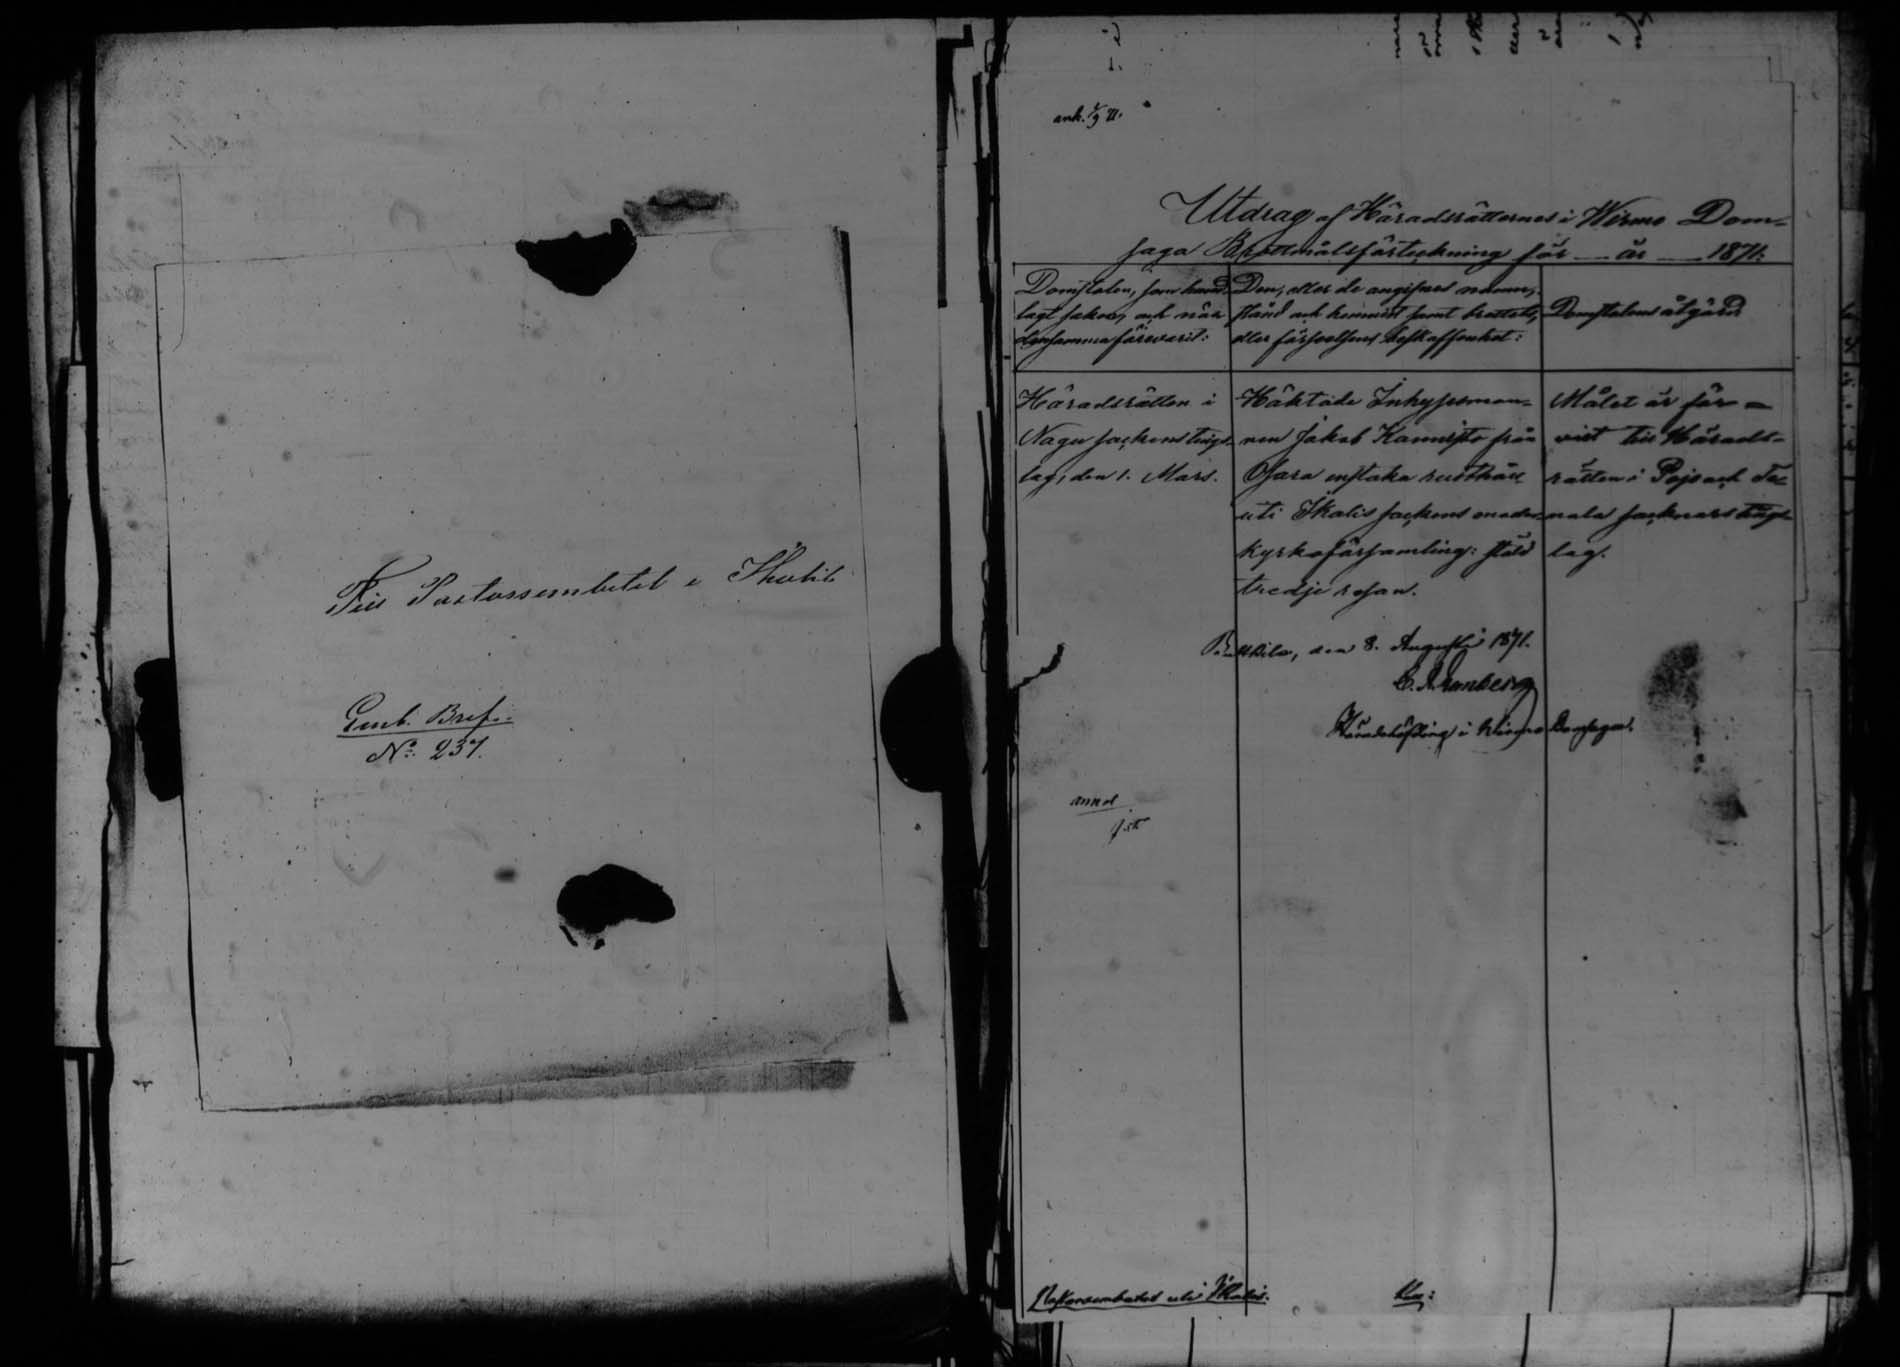 Till Pastorsembetet i Ikalis
Emb. Bref.
No. 237.
ank. 1/9 71.
Utdrag af Häradsrätternes i Wirmo Dom-
saga Brottmålsförteckning för — år — 1871.
Domstolen, som hand-
lagt saken, och när
densamma förevarit:
Den, eller de angifnes namn,
stånd och hemvist samt brottets,
eller förseelsens beskaffenhet:
Domstolens åtgärd.
Häradsrätten i
Nagu sockens tings-
lag, den 1. Mars.
Häktade Inhysesman-
nen Jakob Kannisto från
Osara enstaka rusthåll
uti Ikalis sockens moder-
kyrkoförsamling: stöld
tredje resan.
Målet är för-
vist till Härads-
rätten i Pojo och Te-
nala socknars tings-
lag.
den 8. Augusti 1871.
Häradshöfding i Wirmo Domsaga.
Pastorsembetet uti Ikalis.